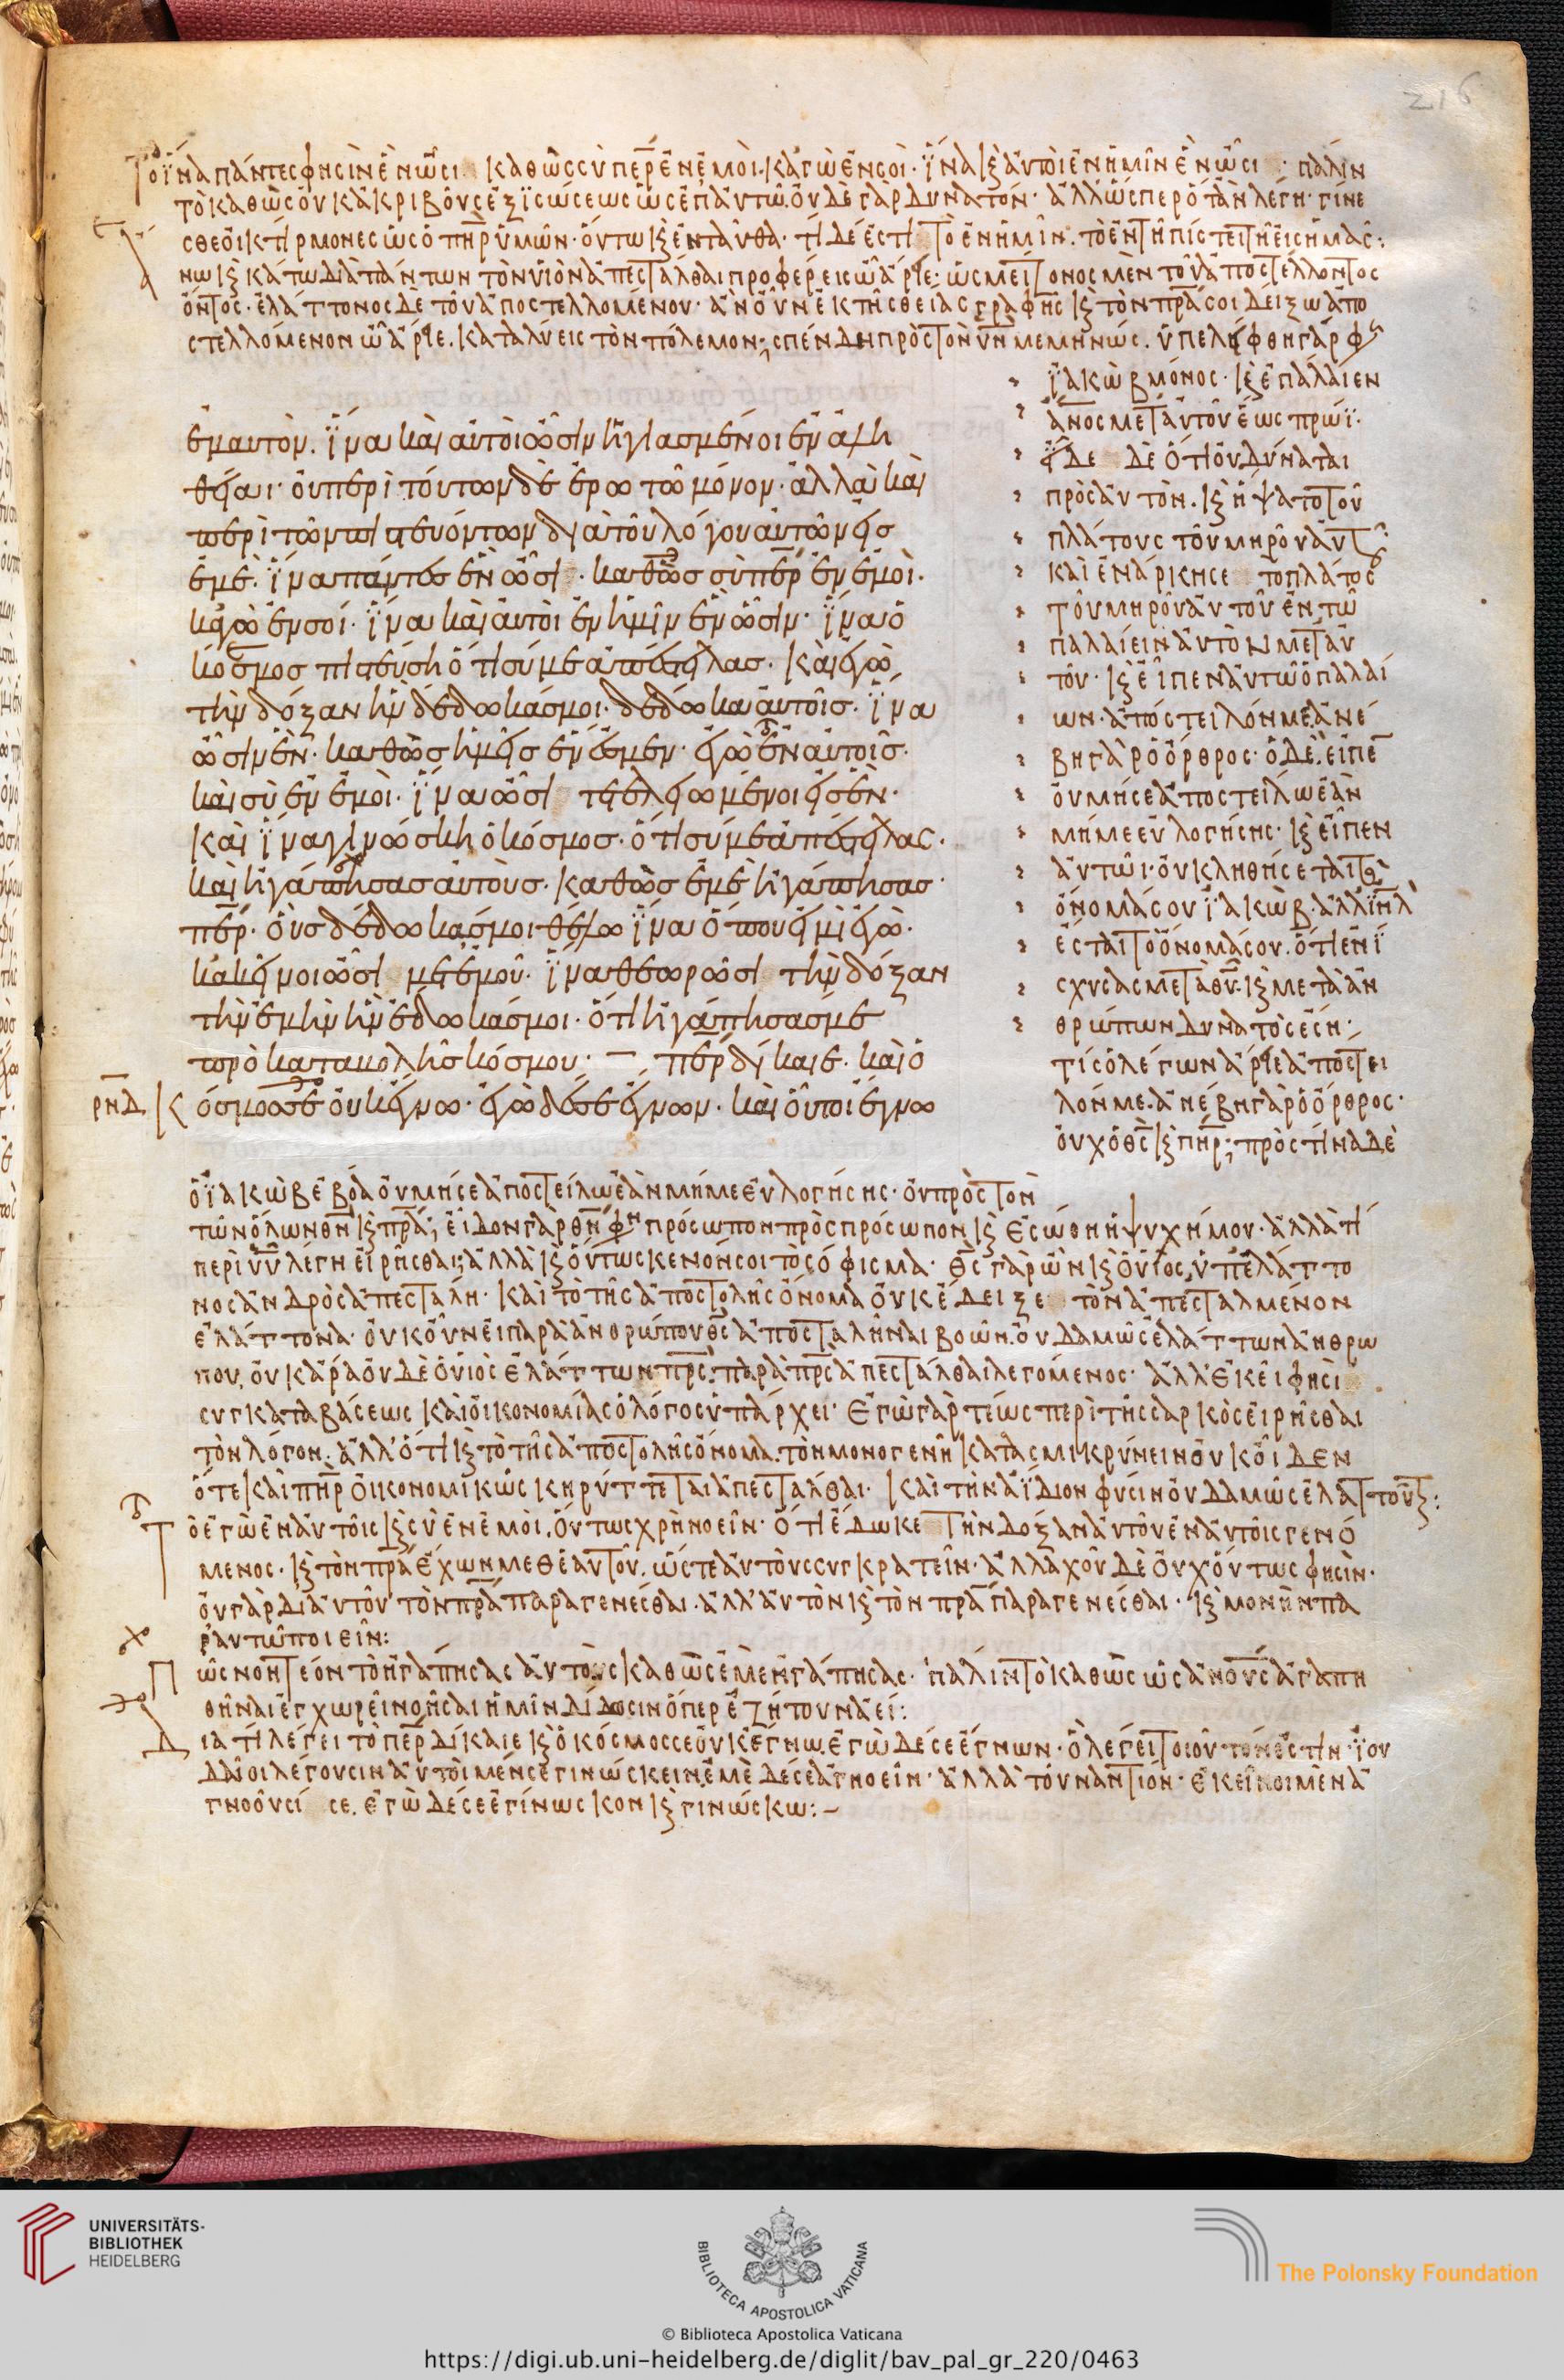 216
Τὸ ἵνα πάντες φησὶν ἓν ὦσι καθὼς σὺ περ ἐν ἐμοὶ. καγὼ ἐν σοὶ. ἵνα κ αὐτοὶ ἐν ἡμῖν ἓν ὦσι πάλιν
τὸ καθὼς οὐκ ἀκριβοῦς ἐξισώσεως ὡς ἐπ αὐτῶ. οὐδὲ γὰρ δυνατόν. ἀλλ ὥσπερ ὅταν λέγη. γίνε
σθε οἰκτίρμονες ὡς ὁ πηρ ὑμῶν. οὕτω κ ἐνταῦθα. τί δέ ἐστι τὸ ἐν ἡμῖν. τὸ ἐν τῆ πίστει τῆ εἰς ἡμᾶς:
νω κ κάτω διὰ πάντων τὸν υἱὸν ἀπεστάλθαι προφέρεις ὦ ἄρειε. ὡς μείζονος μὲν τοῦ ἀποστέλλοντος
ὄντος. ἐλάττονος δὲ τοῦ ἀποστελλομένου. ἂν οὖν ἐκ τῆς θείας γραφῆς κ τὸν πρα σοι δείξω ἀπο
στελλόμενον ὦ ἄρειε. καταλύεις τὸν πόλεμον; σπένδη πρὸς τὸν υν μεμηνώς. ὑπελείφθη γάρ φ
ἰακὼβ μόνος. κ ἐπάλαιεν
ανος μετ αὐτοῦ ἕως πρωΐ.
δὲ ὅτι οὐ δύναται
πρὸς αὐτόν. κ ἥψατο τοῦ
πλάτους τοῦ μηροῦ αὐτ
καὶ ἐνάρκησε τὸ πλάτος
τοῦ μηροῦ αὐτοῦ ἐν τῶ
παλαίειν αὐτὸν μετ αὐ
τόν. κ εἶπεν αὐτῶ ὁ παλαί
ων. ἀπόστειλόν με. ἀνέ
βη γὰρ ὁ ὄρθρος. ὁ δὲ εἶπε
οὐ μή σε ἀποστείλω ἐὰν
μή με εὐλογήσης. κ εἶπεν
αὐτῶ. οὐ κληθήσεται
ὄνομά σου ἰακὼβ. ἀλλ ιηλ
ἔσται τὸ ὄνομά σου. ὅτι ἐνί
σχυσας μετὰ θυ. κ μετὰ ἀν
θρώπων δυνατὸς ἔση.
τίς ὁ λέγων ἄρειε ἀπόστει
λόν με. ἀνέβη γὰρ ὁ ὄρθρος.
οὐχ ὁ θς κ πηρ; πρὸς τίνα δὲ
ἐμαυτὸν. ἵνα καὶ αὐτοὶ ὦσιν ἡγιασμένοι ἐν ἀλη
θείαι. οὐ περὶ τούτων δὲ ἐρωτῶ μόνον. ἀλλὰ καὶ
περὶ τῶν πιστευόντων διὰ τοῦ λόγου αὐτῶν εἰς
ἐμέ. ἵνα πάντες ἓν ὦσι. καθὼς σὺ περ ἐν ἐμοὶ.
καγὼ ἐν σοί. ἵνα καὶ αὐτοὶ ἐν ἡμῖν ἓν ὦσιν. ἵνα ὁ
κόσμος πιστεύση ὅτι σύ με ἀπέστειλας. Καὶ ἐγὼ
τὴν δόξαν ἣν δέδωκάς μοι. δέδωκα αὐτοῖς. ἵνα
ὦσιν ἓν. καθὼς ἡμεῖς ἕν ἐσμεν. ἐγὼ ἐν αὐτοῖς.
καὶ σὺ ἐν ἐμοὶ. ἵνα ὦσι τετελειωμένοι εἰς ἓν.
Καὶ ἵνα γινώσκη ὁ κόσμος. ὅτι σύ με ἀπέστειλας.
καὶ ἠγάπησας αὐτοὺς. καθὼς ἐμὲ ἠγάπησας.
περ. οὓς δέδωκάς μοι θέλω ἵνα ὅπου εἰμὶ ἐγὼ.
κακεῖνοι ὦσι μετ ἐμοῦ. ἵνα θεωρῶσι τὴν δόξαν
τὴν ἐμὴν ἣν ἔδωκάς μοι. ὅτι ἠγάπησάς με
πρὸ καταβολῆς κόσμου. περ δίκαιε. καὶ ὁ
ρνδ Κόσμος σε οὐκ ἔγνω. ἐγὼ δέ σε ἔγνων. καὶ οὗτοι ἔγνω
ὁ ἰακὼβ ἐβόα οὐ μή σε ἀποστείλω ἐὰν μή με εὐλογήσης. οὐ πρὸς τὸν
τῶν ὅλων θν κ πρα; εἶδον γὰρ θν φη πρόσωπον πρὸς πρόσωπον κ ἐσώθη ἡ ψυχή μου. ἀλλὰ τί
περὶ υυ λέγη εἰρῆσθαι; ἀλλὰ κ οὕτως κενόν σοι τὸ σόφισμα. θς γὰρ ὢν κ ὁ υἱος, ὑπ ἐλάττο
νος ἀνδρὸς ἀπεστάλη. καὶ τὸ τῆς ἀποστολῆς ὄνομα οὐκ ἔδειξε τὸν ἀπεσταλμένον
ἐλάττονα. οὐκοῦν εἰ παρὰ ἀνθρώπου θς ἀποσταλῆναι βοῶν. οὐδαμῶς ἐλάττων ἀνθρώ
που, οὐκ ἄρα οὐδὲ ὁ υἱὸς ἐλάττων πρς. παρὰ πρς ἀπεστάλθαι λεγόμενος. ἀλλ ἐκεῖ φησὶ
συγκαταβάσεως καὶ οἰκονομίας ὁ λόγος ὑπάρχει. Ἐγὼ γὰρ τέως περὶ τῆς σαρκὸς εἰρῆσθαι
τὸν λόγον. ἀλλ ὅτι κ τὸ τῆς ἀποστολῆς ὄνομα. τὸν μονογενῆ κατασμικρύνειν οὐκ οἶδεν
ὅτε καὶ πηρ οἰκονομικῶς κηρύττεται ἀπεστάλθαι. καὶ τὴν ἀΐδιον φύσιν οὐδαμῶς ἐλάττου
Τὸ ἐγὼ ἐν αὐτοῖς κ σὺ ἐν ἐμοὶ. οὕτως χρὴ νοεῖν. ὅτι ἔδωκε τὴν δόξαν αὐτοῦ ἐν αὐτοῖς γενό
μενος. κ τὸν πρα ἔχων μεθ ἑαυτοῦ. ὥστε αὐτοὺς συγκρατεῖν. ἀλλαχοῦ δὲ οὐχ οὕτως φησὶν.
οὐ γὰρ δι αὐτοῦ τὸν πρα παραγενέσθαι. ἀλλ αὐτὸν κ τὸν πρα παραγενέσθαι. κ μονὴν πα
ρ αυτῶ ποιεῖν:
Πῶς νοητέον τὸ ἠγάπησας αὐτοὺς καθὼς ἐμὲ ἠγάπησας. πάλιν τὸ καθὼς ὡς ανους ἀγαπη
θῆναι ἐγχωρεῖ νοῆσαι ἡμῖν δίδωσιν ὅπερ ἐζήτουν ἀεί:
Διατί λέγει τὸ περ δίκαιε κ ὁ κόσμος σε οὐκ ἔγνω. ἐγὼ δέ σε ἔγνων. ὃ λέγει τοιοῦτόν ἐστιν. ἰου
δαῖοι λέγουσιν αὐτοὶ μέν σε γινώσκειν. ἐμὲ δέ σε ἀγνοεῖν. ἀλλὰ τὸ ὐναντίον. ἐκεῖνοι μὲν ἀ
γνοοῦσί σε. ἐγὼ δέ σε ἐγίνωσκον κ γινώσκω:–
UNIVERSITÄTS-
BIBLIOTHEK
HEIDELBERG
BIBLIOTECA APOSTOLICA VATICANA
The Polonsky Foundation
© Biblioteca Apostolica Vaticana
https://digi.ub.uni-heidelberg.de/diglit/bav_pal_gr_220/0463